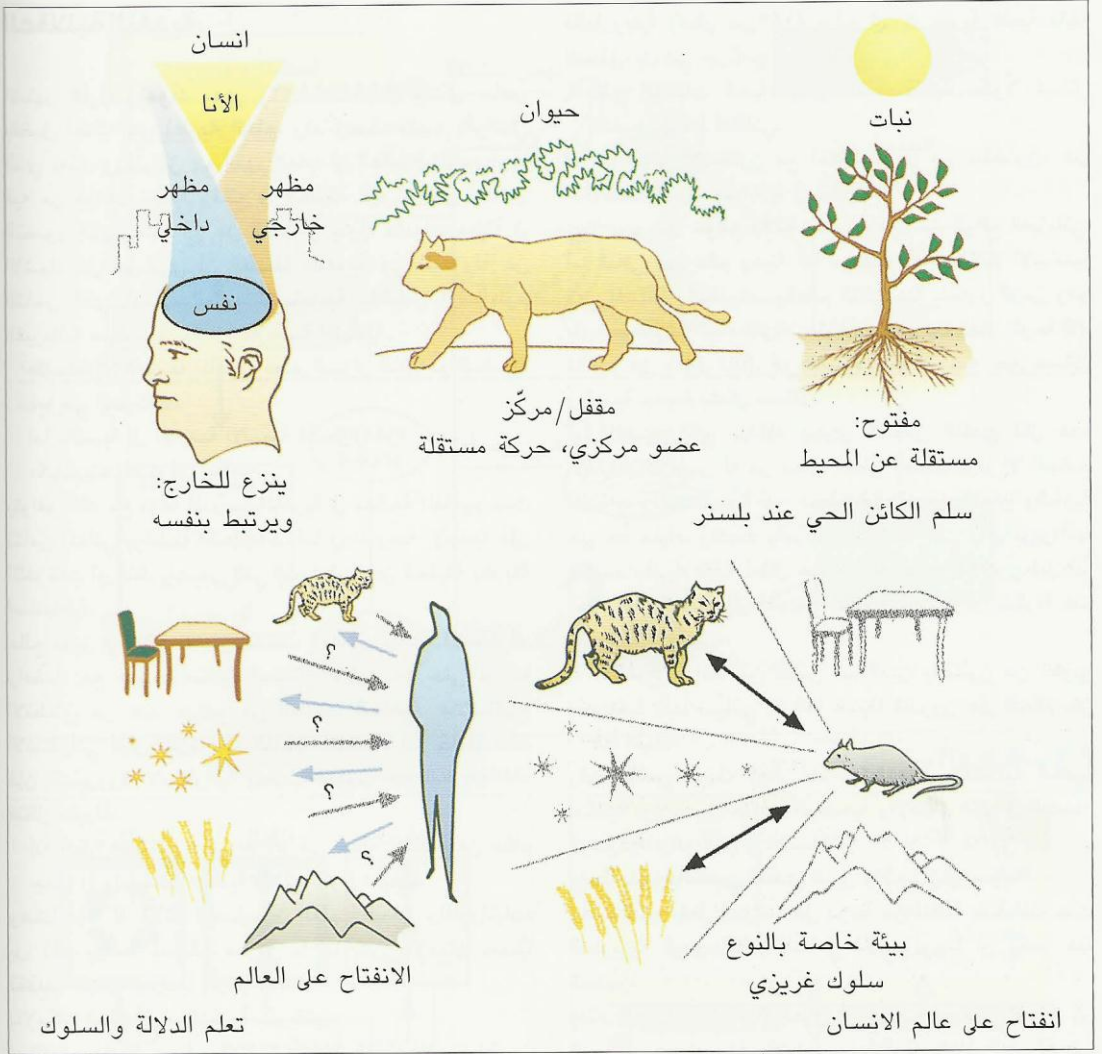 نبات
مفتوح:
مستقلة عن المحيط
حيوان
مقفل/مركّز
عضو مركزي، حركة مستقلة
انسان
الأنا
مظهر
خارجي
مظهر
داخلي
نفس
ينزع للخارج:
ويرتبط بنفسه
سلم الكائن الحي عند بلسنر
بيئة خاصة بالنوع
سلوك غريزي
انفتاح على عالم الانسان
؟
؟
؟
؟
الانفتاح على العالم
تعلم الدلالة والسلوك